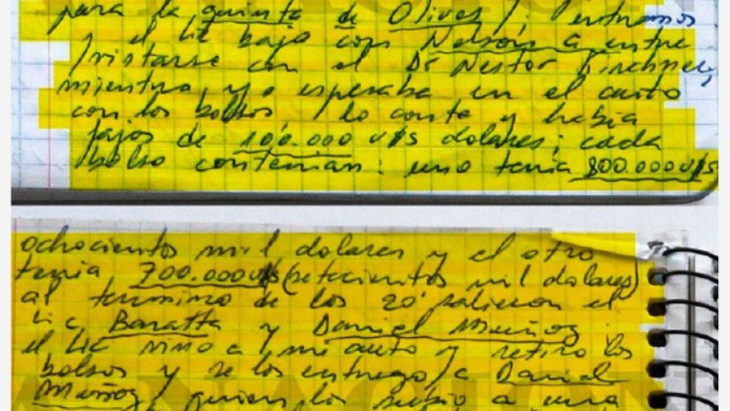 para la quinta de Olivos /. entramos
y el Lic bajo con Nelson a entre
/vistarse con el Dr Nestor Kirchner,
mientras yo esperaba en el auto
con los bolsos, lo conte y habia
fajos de 100.000 u/s dolares; cada
bolso contenian: uno tenia 800.000 u/s
ochocientos mil dolares y el otro
tenia 700.000 u/s (setecientos mil dolares)
al termino de los 20' salieron el
Lic Baratta y Daniel Muñoz
el Lic vino a mi auto y retiro los
bolsos y se los entrego a Daniel
Muñoz / quien los subio a una